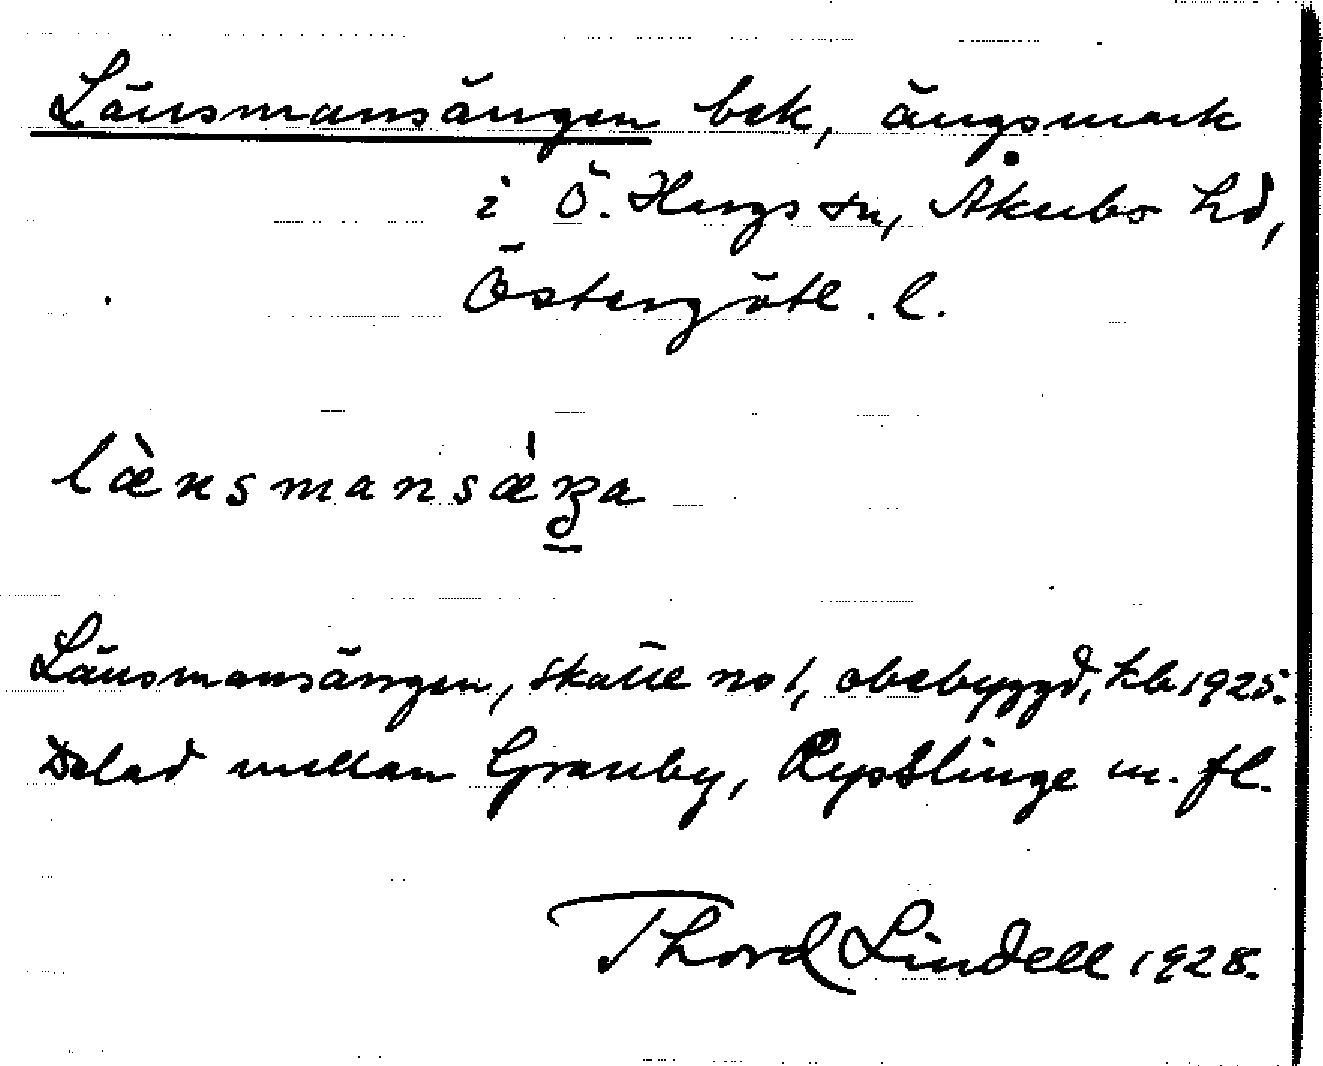 Länsmansängen bek, ängsmark
i Ö. Hargs sn, Åkerbo hd,
Östergötl. l.
læ̀nsmansǽŋa
Länsmansängen, skatte no 1, obebyggd, kb 1925.
Delad mellan Granby, Rystlinge m. fl.
Thord Lindell 1928.